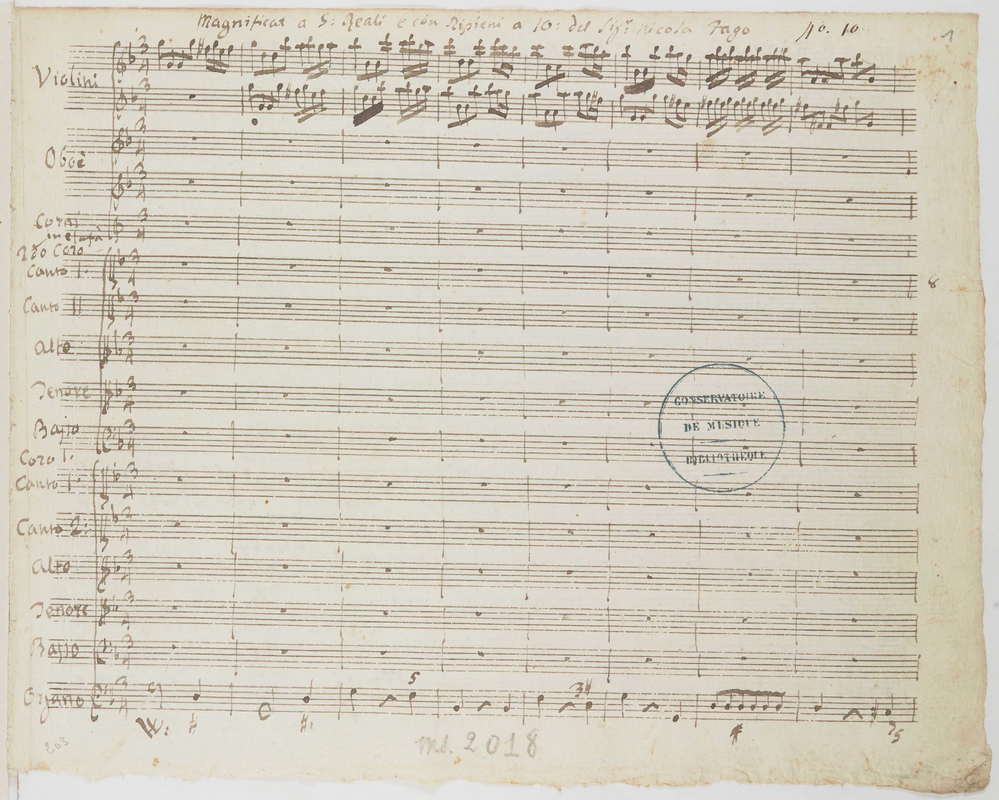 Magnificat a 5: Reali e con Ripieni a 10: del Sigr. Nicola Fago No. 10
1
Violini
Oboè
Corni
in elafà
2do Coro
Canto I.
8
Canto II
Alto
Tenore
Basso
CONSERVATOIRE
DE MUSIQUE
BIBLIOTHÈQUE
Coro I.
Canto 1.
Canto 2.
Alto
Tenore
Basso
Organo
203
ms. 2018